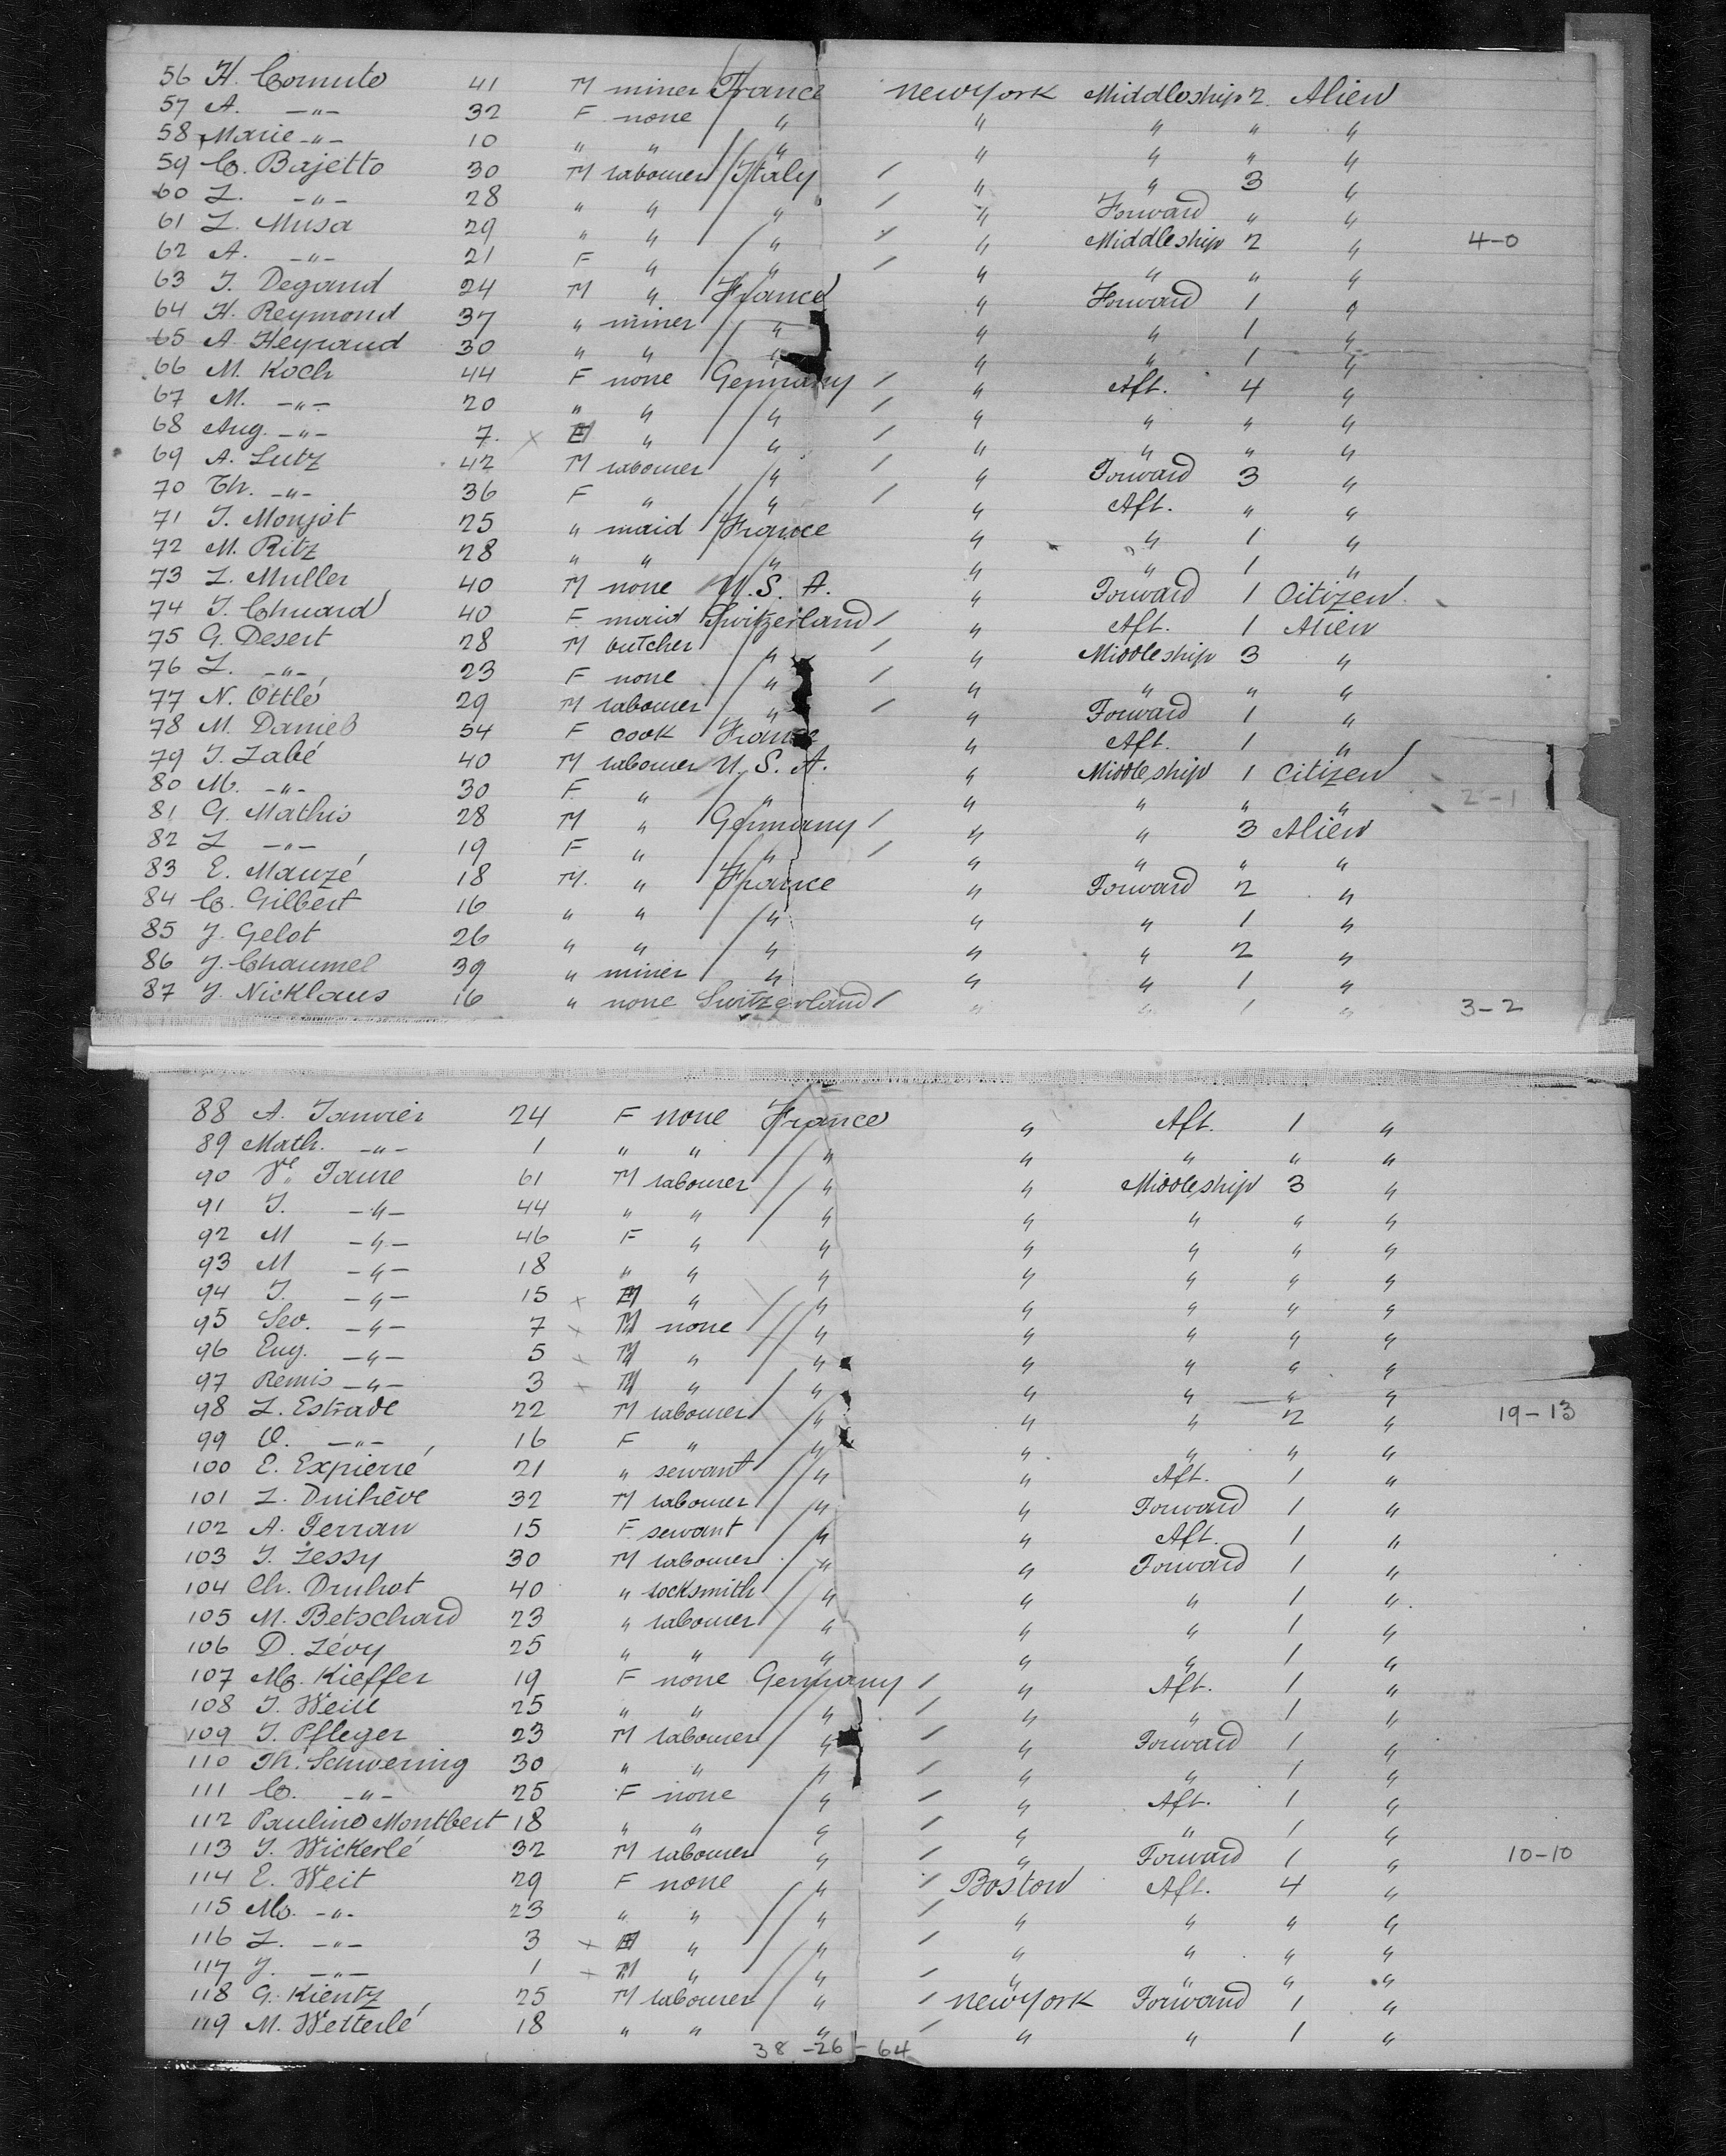 56 H. Comuto 41 M miner France New York Middleship 2 Alien
57 A. -"- 32 F none " " " " "
58 Marie -"- 10 " " " " " " "
59 C. Bajetto 30 M labourer Italy / " " 3 "
60 L. -"- 28 " " " / " Forward " "
61 L. Musa 29 " " " / " Middleship 2 " 4-0
62 A. -"- 21 F " " / " " " "
63 J. Degand 24 M " France " Forward 1 "
64 H. Reymond 37 " miner " " " 1 "
65 A Heyraud 30 " " " " " 1 "
66 M. Koch 44 F none Germany / " Aft. 4 "
67 M. -"- 20 " " " / " " " "
68 Aug. -"- 7. x M " " / " " " "
69 A. Lutz 42 M labourer " / " Forward 3 "
70 Th. -"- 36 F " " / " Aft. " "
71 J. Monjot 25 " maid France " " 1 "
72 M. Ritz 28 " " " " " 1 "
73 L. Muller 40 M none U.S.A. " Forward 1 Citizen
74 J. Chuard 40 F maid Switzerland / " Aft. 1 Alien
75 G. Desert 28 M butcher " / " Middleship 3 "
76 L. -"- 23 F none " / " " " "
77 N. Ottlé 29 M labourer " / " Forward 1 "
78 M. Daniel 54 F cook France " Aft. 1 "
79 J. Labé 40 M labourer U.S.A. " Middleship 1 Citizen
80 M. -"- 30 F " " " " " " 2-1
81 G. Mathis 28 M " Germany / " " 3 Alien
82 L -"- 19 F " " / " " " "
83 E. Mauzé 18 M. " France " Forward 2 "
84 C. Gilbert 16 " " " " " 1 "
85 J. Gelot 26 " " " " " 2 "
86 J. Chaumel 39 " miner " " " 1 "
87 J. Nicklaus 16 " none Switzerland / " " 1 " 3-2
88 A. Janvier 24 F none France " Aft. 1 "
89 Math. -"- 1 " " " " " " "
90 Ve Faure 61 M labourer " " Middleship 3 "
91 J. -"- 44 " " " " " " "
92 M -"- 46 F " " " " " "
93 M -"- 18 " " " " " " "
94 J. -"- 15 x M " " " " " "
95 Sev. -"- 7 x M none " " " " "
96 Eug. -"- 5 x M " " " " " "
97 Remis -"- 3 x M " " " " " "
98 L. Estrade 22 M labourer " " " 2 " 19-13
99 O. -"- 16 F " " " " " "
100 E. Expierré 21 " servant " " Aft. 1 "
101 L. 32 M labourer " " Forward 1 "
102 A. Ferran 15 F servant " " Aft. 1 "
103 J. Lessy 30 M labourer " " Forward 1 "
104 Ch. Druhot 40 " locksmith " " " 1 "
105 M. Betschard 23 " labourer " " " 1 "
106 D. Lévy 25 " " " " " 1 "
107 M. Kieffer 19 F none Germany / " Aft. 1 "
108 J. Weill 25 " " " / " " 1 "
109 J. Pfleger 23 M labourer " / " Forward 1 "
110 Th. Schwering 30 " " " / " " 1 "
111 C. -"- 25 F none " / " Aft. 1 "
112 Pauline Montbert 18 " " " / " " 1 "
113 J. Wickerlé 32 M labourer " / " Forward 1 " 10-10
114 E. Weit 29 F none " / Boston Aft. 4 "
115 M. -"- 23 " " " / " " " "
116 L. -"- 3 x M " " / " " " "
117 J. -"- 1 x M " " / " " " "
118 G. Kientz 25 M labourer " / New York Forward 1 "
119 M. Wetterlé 18 " " " / " " 1 "
38-26-64